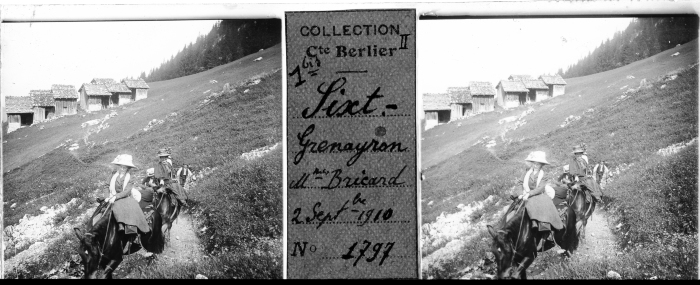 COLLECTION II
Cte Berlier
1bis
Sixt.-
Grenayron
Mmes Bricard
2 Septbre 1910
No 1797